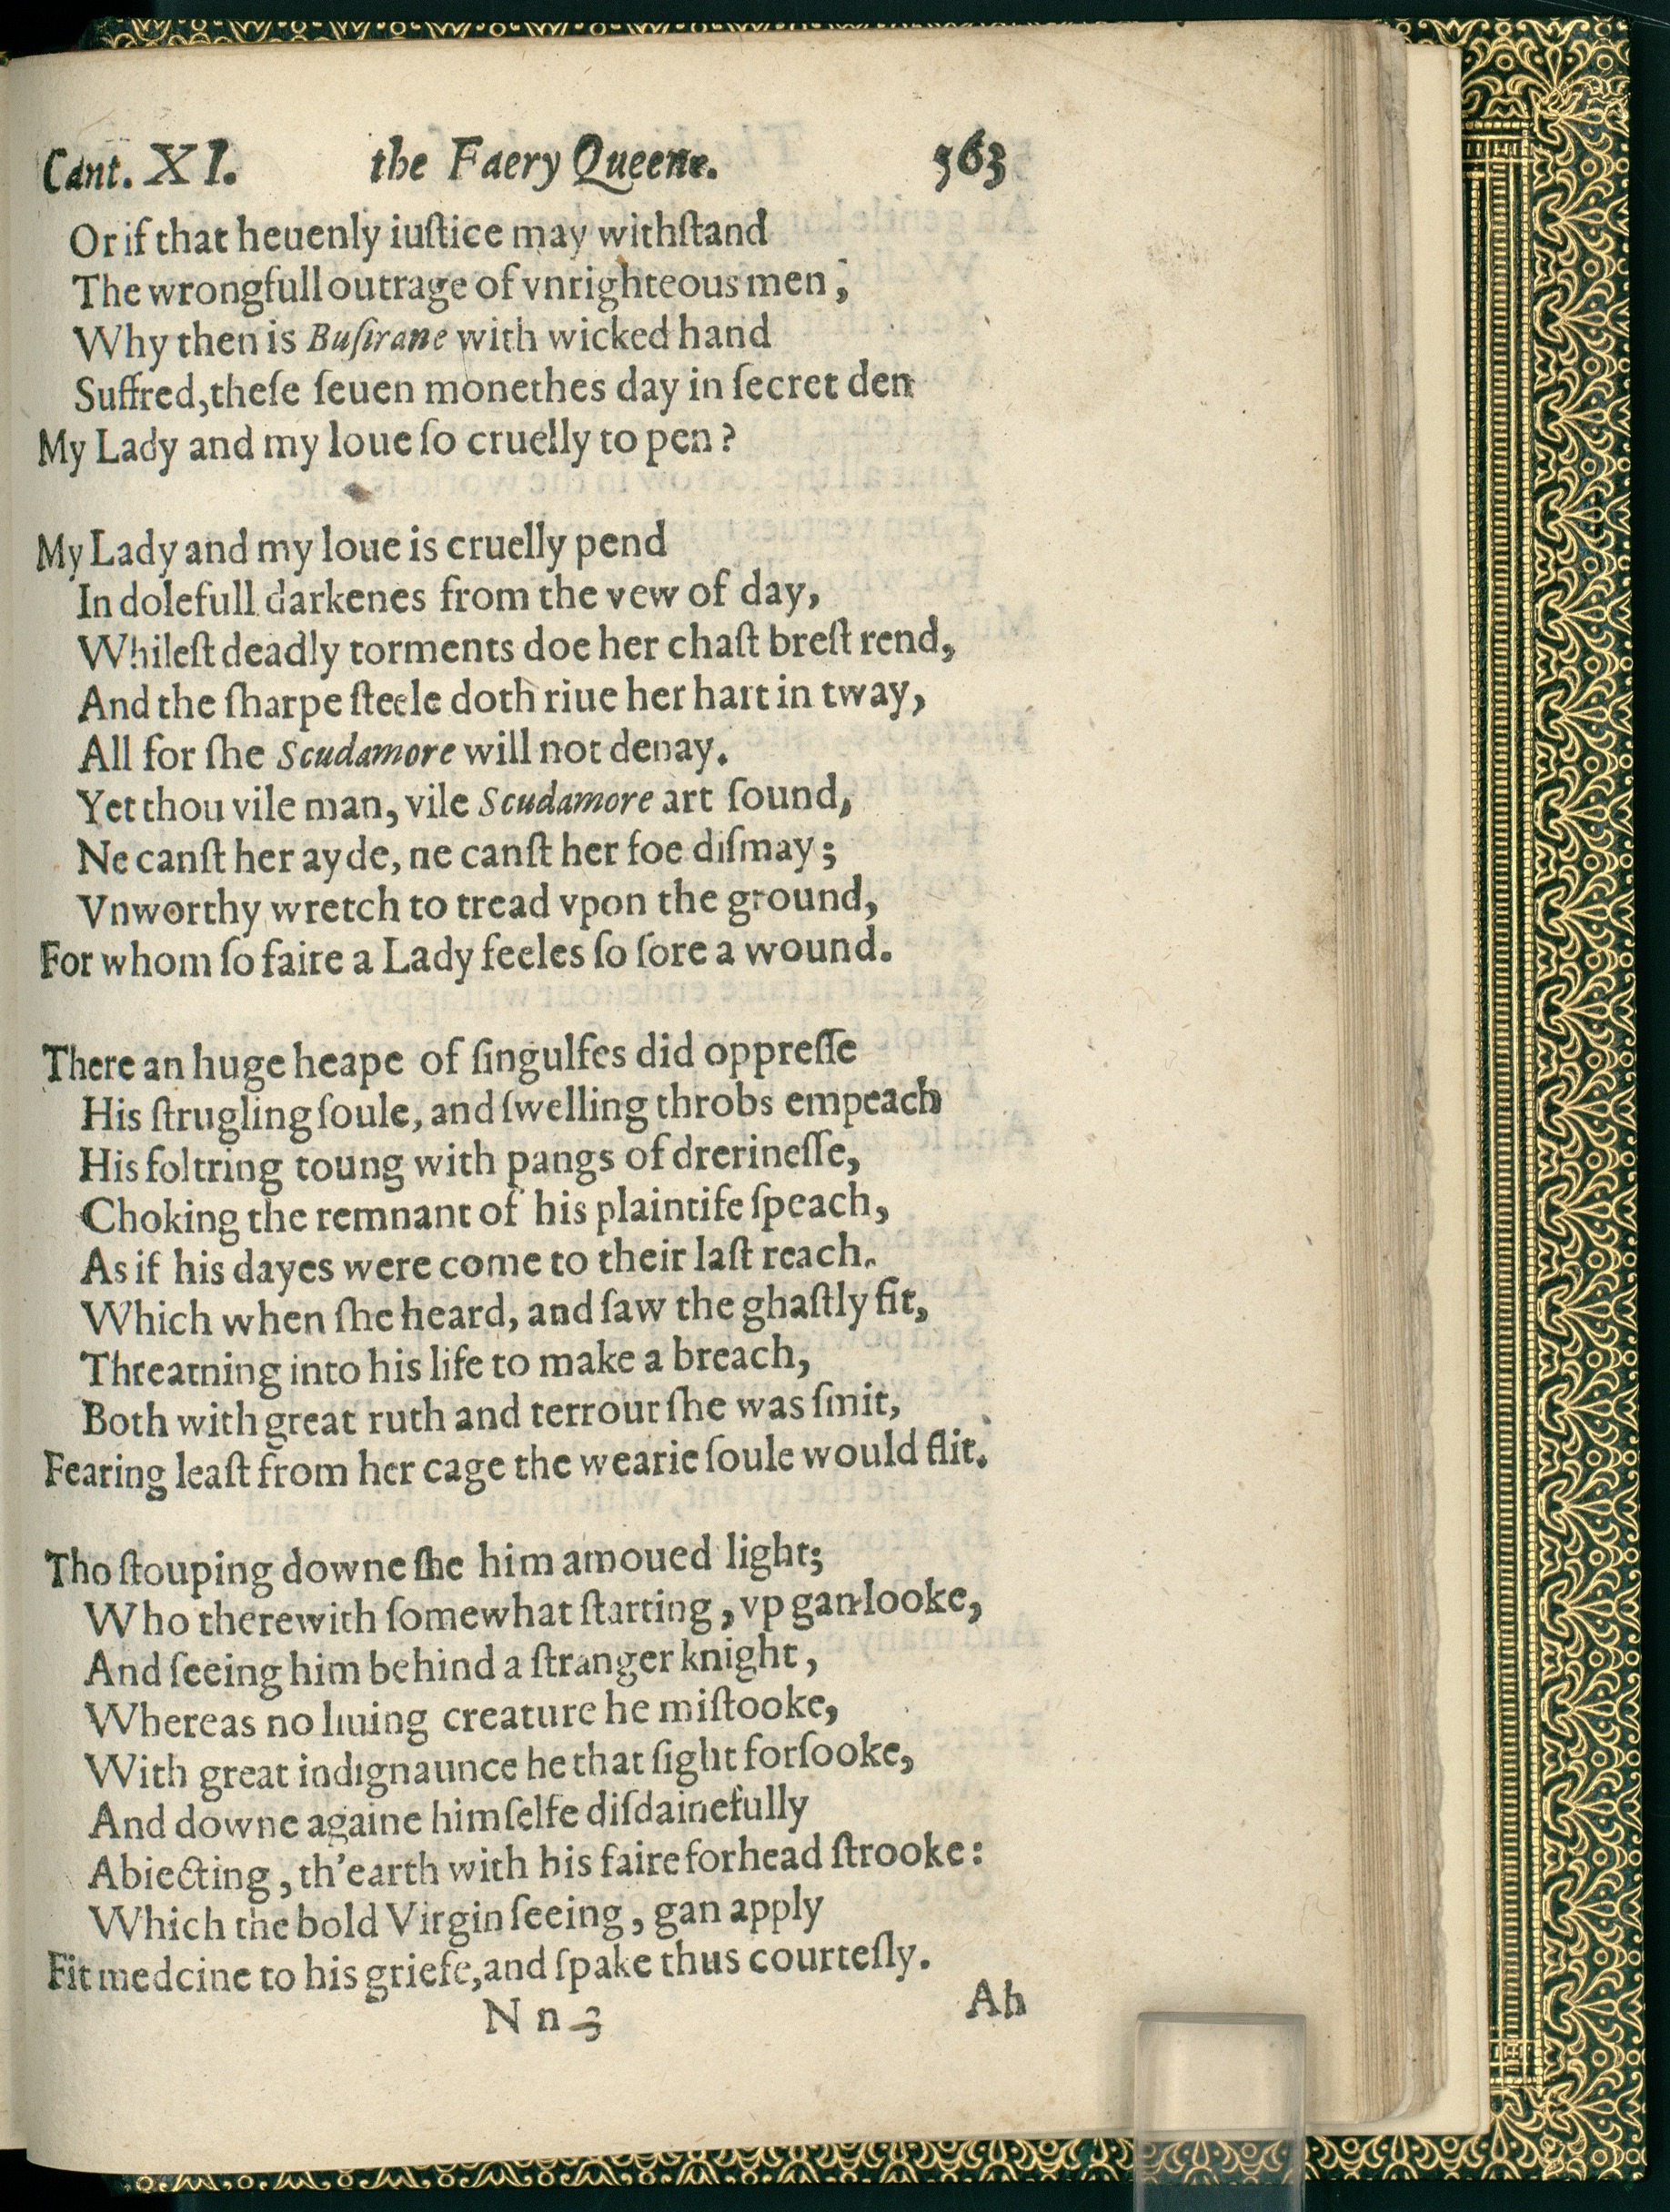 Cant. XI. the Faery Queene. 563
Or if that heuenly iuſtice may withſtand
The wrongfull outrage of vnrighteous men;
Why then is Buſirane with wicked hand
Suffred, theſe ſeuen monethes day in ſecret den
My Lady and my loue ſo cruelly to pen?
My Lady and my loue is cruelly pend
In dolefull darkenes from the vew of day,
Whileſt deadly torments doe her chaſt breſt rend,
And the ſharpe ſteele doth riue her hart in tway,
All for ſhe Scudamore will not denay.
Yet thou vile man, vile Scudamore art ſound,
Ne canſt her ayde, ne canſt her foe diſmay;
Vnworthy wretch to tread vpon the ground,
For whom ſo faire a Lady feeles ſo ſore a wound.
There an huge heape of ſingulfes did oppreſſe
His ſtrugling ſoule, and ſwelling throbs empeach
His foltring toung with pangs of drerineſſe,
Choking the remnant of his plaintife ſpeach,
As if his dayes were come to their laſt reach.
Which when ſhe heard, and ſaw the ghaſtly fit,
Threatning into his life to make a breach,
Both with great ruth and terrour ſhe was ſmit,
Fearing leaſt from her cage the wearie ſoule would flit.
Tho ſtouping downe ſhe him amoued light;
Who therewith ſomewhat ſtarting, vp gan looke,
And ſeeing him behind a ſtranger knight,
Whereas no liuing creature he miſtooke,
With great indignaunce he that ſight forſooke,
And downe againe himſelfe diſdainefully
Abiecting, th'earth with his faire forhead ſtrooke:
Which the bold Virgin ſeeing, gan apply
Fit medcine to his griefe, and ſpake thus courteſly.
N n 3 Ah